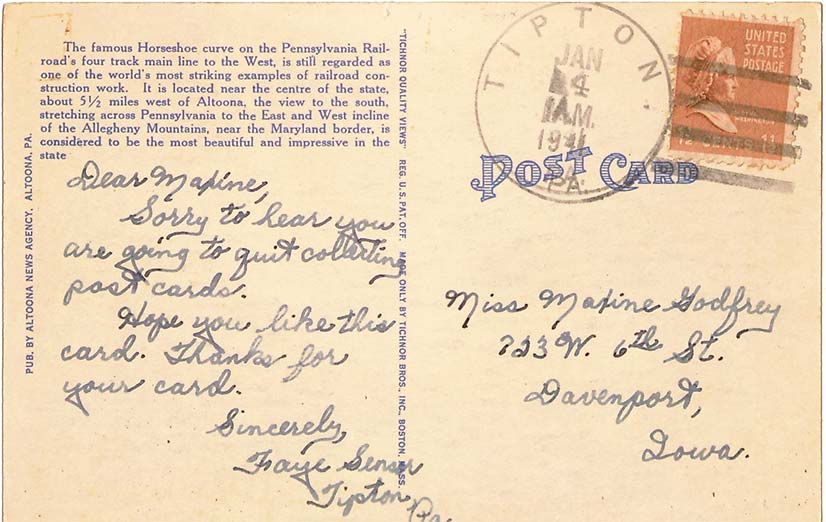 The famous Horseshoe curve on the Pennsylvania Rail-
road's four track main line to the West, is still regarded as
one of the world's most striking examples of railroad con-
struction work. It is located near the centre of the state,
about 5½ miles west of Altoona, the view to the south,
stretching across Pennsylvania to the East and West incline
of the Allegheny Mountains, near the Maryland border, is
considered to be the most beautiful and impressive in the
state
PUB. BY ALTOONA NEWS AGENCY, ALTOONA, PA.
Dear Maxine,
Sorry to hear you
are going to quit collecting
post cards.
Hope you like this
card. Thanks for
your card.
Sincerely,
Faye Senser
Tipton,
Pa.
"TICHNOR QUALITY VIEWS" REG. U.S. PAT. OFF. MADE ONLY BY TICHNOR BROS., INC., BOSTON, MASS.
TIPTON
JAN
4
A.M.
PA.
UNITED
STATES
POSTAGE
WASHINGTON
1½ CENTS 1½
POST CARD
Miss Maxine Godfrey
W. 6th St.
Davenport,
Iowa.